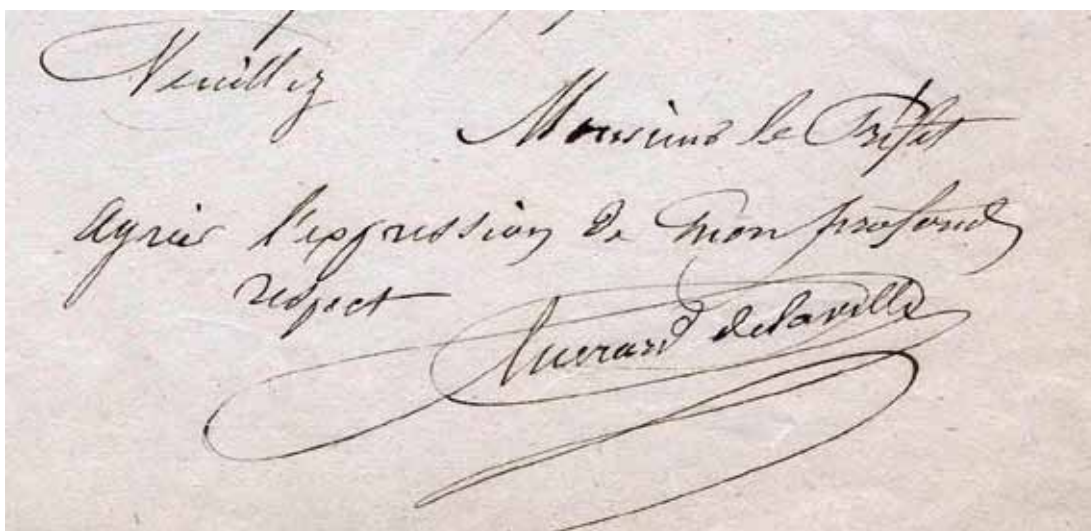 Veuillez
Monsieur le Préfet
agréer l'expression de mon profond
respect
delaville